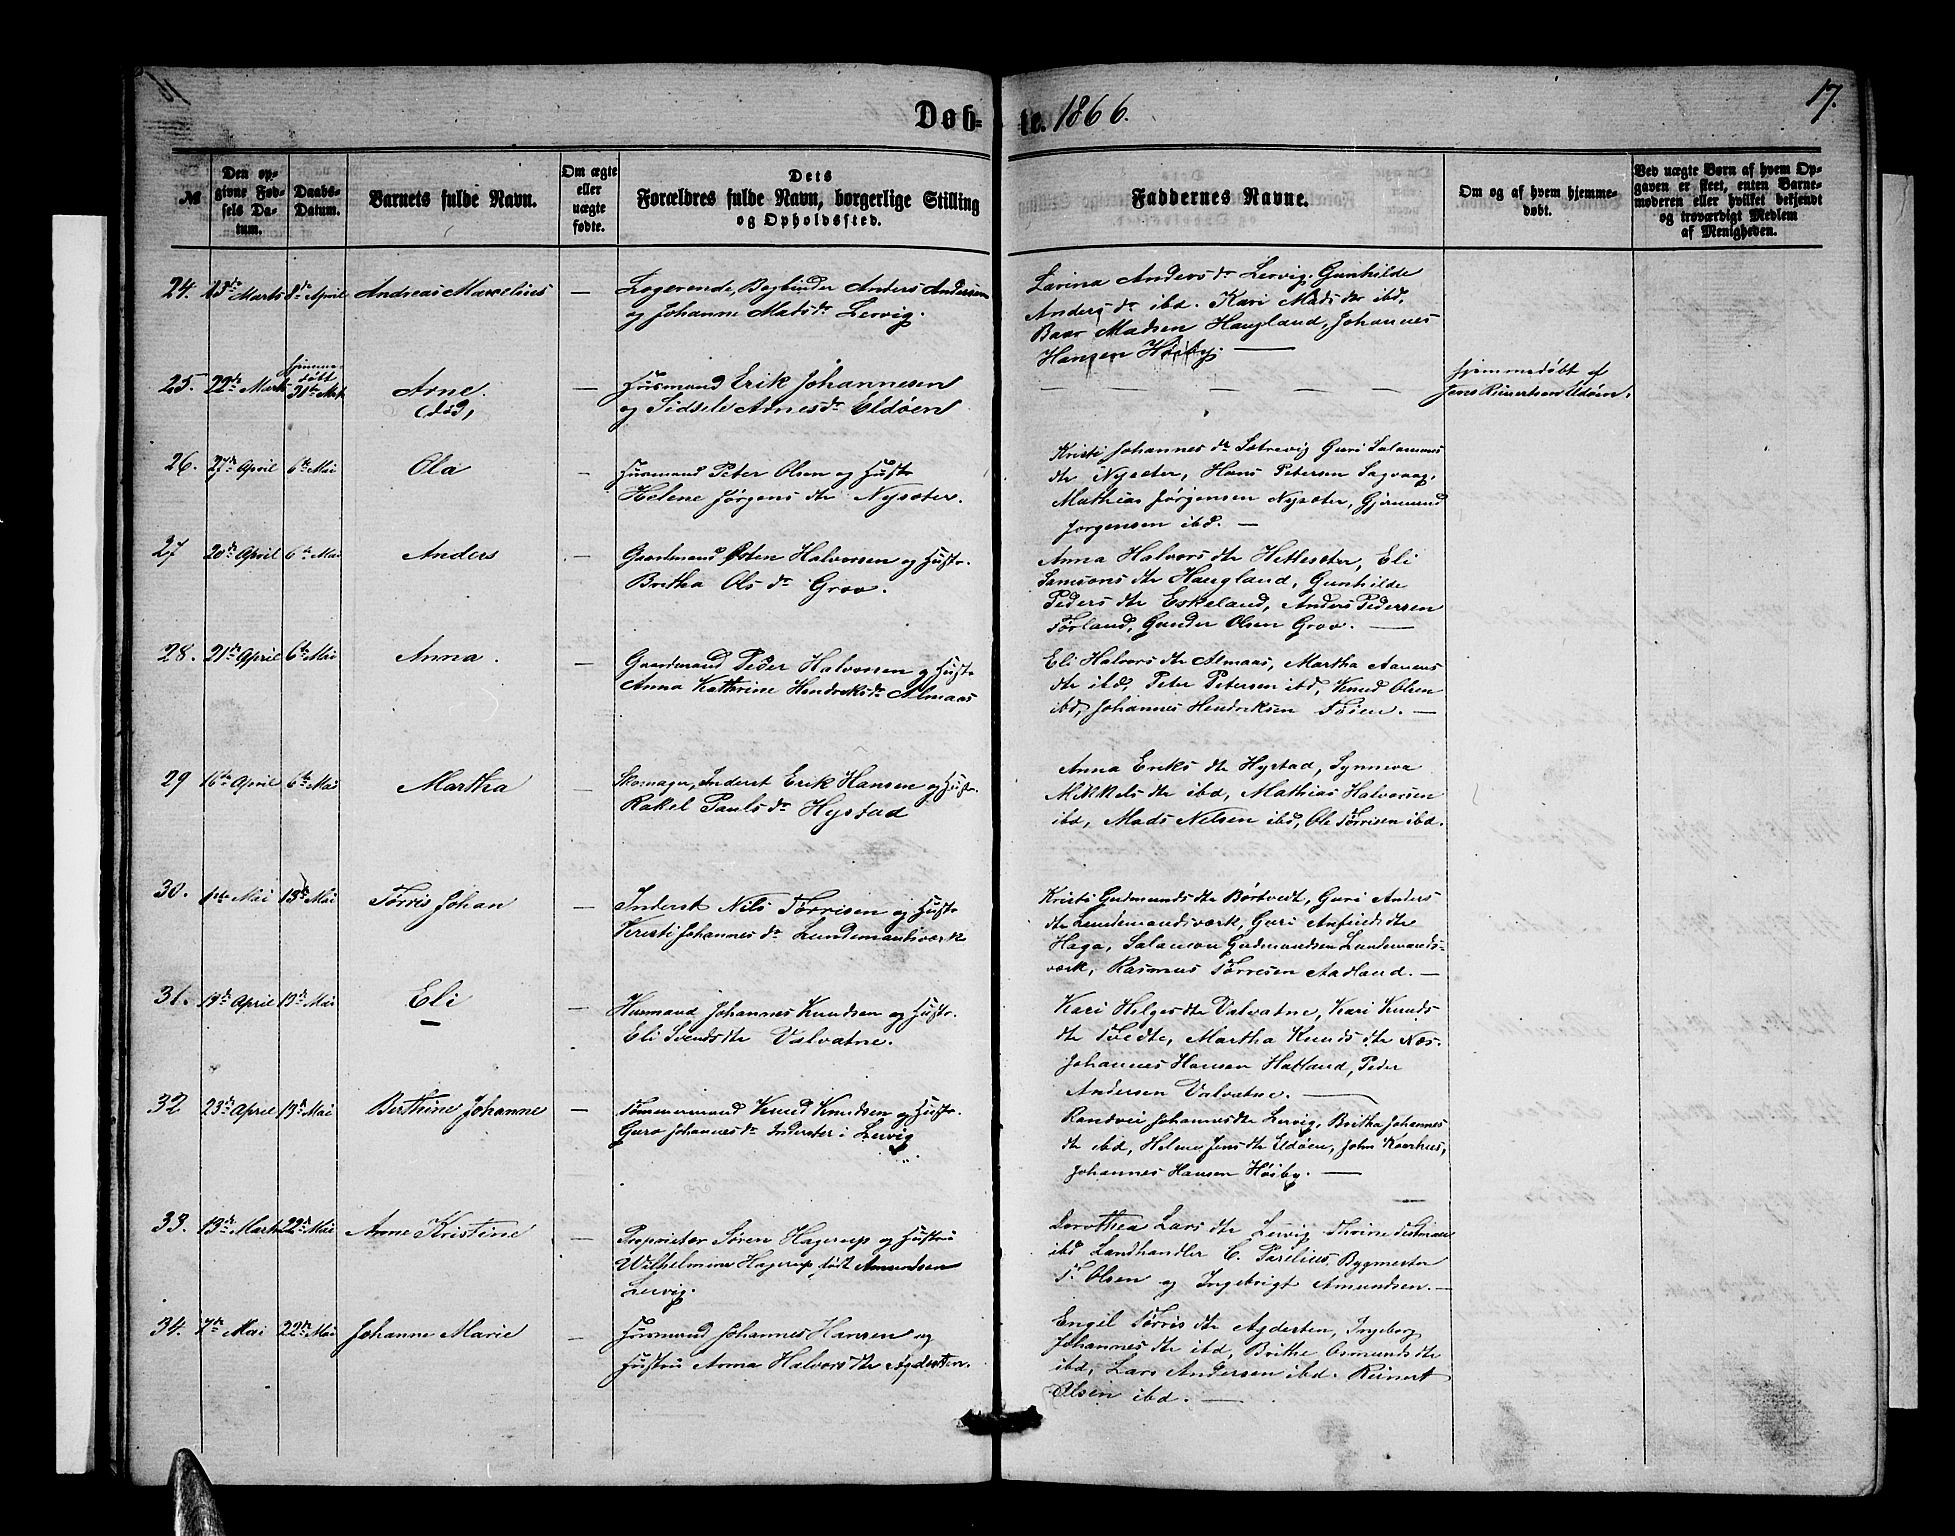 Døb-te. 1866.
17.
№
Den opgivne Fødsels Datum.
Daabs-Datum.
Barnets fulde Navn.
Om ægte eller uægte fødte.
Dets Forældres fulde Navn, borgerlige Stilling og Opholdssted.
Faddernes Navne.
Om og af hvem hjemmedøbt.
Ved uægte Børn af hvem Opgaven er skeet, enten Barnemoderen eller hvilket bekjendt og troværdigt Medlem af Menigheden.
24. 13de Marts 8de April Andreas Marselius —
Logerende, Bogbinder Anders Andersen
og Johanne Matsdr Lervig.
Larina Andersdr Lervig. Gunhilde
Andersdr ibd. Kari Madsdtr ibd,
Baar Madsen Haugland, Johannes
Hansen Høiby. —
25. 22de Marts
Hjemmedøbt
31te Mrt.
Arne.
(død)
—
Husmand Erik Johannesen
og Sidsele Arnesdr Eldøen
— — — —
hjemmedøbt af
Jens Rinertsen Eldøen.
26. 27de April 6te Mai Ola —
Husmand Peter Olsen og Hustr
Helene Jørgensdtr Nysæter.
Kristi Johannesdtr Sætrevig Guri Salamons
dtr Nysæter, Hans Petersen Sagvaag,
Mathias Jørgensen Nysæter, Gjermund
Jørgensen ibd. —
27 20de April 6te Mai Anders —
Gaardmand Østen Halvorsen og Hustr.
Britha Olsdr Grov.
Anna Halvorsdtr Hettesæter, Eli
Samsonsdtr Haugland, Gunhilde
Pedersdtr Eskeland, Anders Pedersen
Førland, Gunder Olsen Grov. —
28. 21de April 6te Mai Anna. —
Gaardmand Peder Halvorsen og Hustr
Anna Kathrine Hendriksdr Almaas
Eli Halvorsdtr Almaas, Martha Aamens
dtr ibd, Peter Petersen ibd, Knud Olsen
ibd, Johannes Hendriksen Tøien. —
29 16de April 6te Mai Martha —
Skomager, Inderst Erik Hansen og Hustr.
Rakel Paulsdr Hystad
Anna Eriksdtr Hystad, Synneva
Mikkelsdtr ibd, Mathias Halvorsen
ibd, Mads Nelsen ibd, Ole Tørrisen ibd.
30. 1ste Mai 13de Mai Tørris Johan —
Inderst Nils Tørrisen og Hustr
Kristi Johannesdr Lundemandsværk
Kristi Gudmundsdtr Børtvedt, Guri Anders
dtr Lundemandsværk, Guri Anfindsdtr
Haga, Salamon Gudmundsen Lundemands-
værk, Rasmus Tørresen Aadland. —
31. 19de April 19de Mai Eli —
Husmand Johannes Knudsen og Hustr.
Eli Svendsdtr Valvatne.
Kari Helgesdtr Valvatne, Kari Knuds
dtr Tvedte, Martha Knudsdtr Næs.
Johannes Hansen Hatland, Peder
Andersen Valvatne. —
32 23de April 19de Mai Berthine Johanne —
Tømmermand Knud Knudsen og Hustr.
Guro Johannesdr Inderster i Lervig
Randvei Johannesdtr Lervig, Britha Johannes
dtr ibd, Helene Jensdtr Eldøen, John Kaarhus,
Johannes Hansen Høiby. —
33. 13de Marts 22de Mai Anne Kristine —
Proprietær Søren Hagerup og Hustru
Wilhelmine Hagerup født Amundsen
Lervig.
Dorothea Larsdtr Lervig Thrine
ibd Landhandler C. Parelius, Bygmester
T. Olsen og Ingebrigt Amundsen. —
34. 7de Mai 22de Mai Johanne Marie —
Husmand Johannes Hansen og
Hustru Anna Halvorsdtr Agdesten.
Engil Tørrisdtr Agdesten, Ingeborg
Johannesdtr ibd, Brithe Osmundsdtr
ibd, Lars Andersen ibd. Rinert
Olsen ibd. —